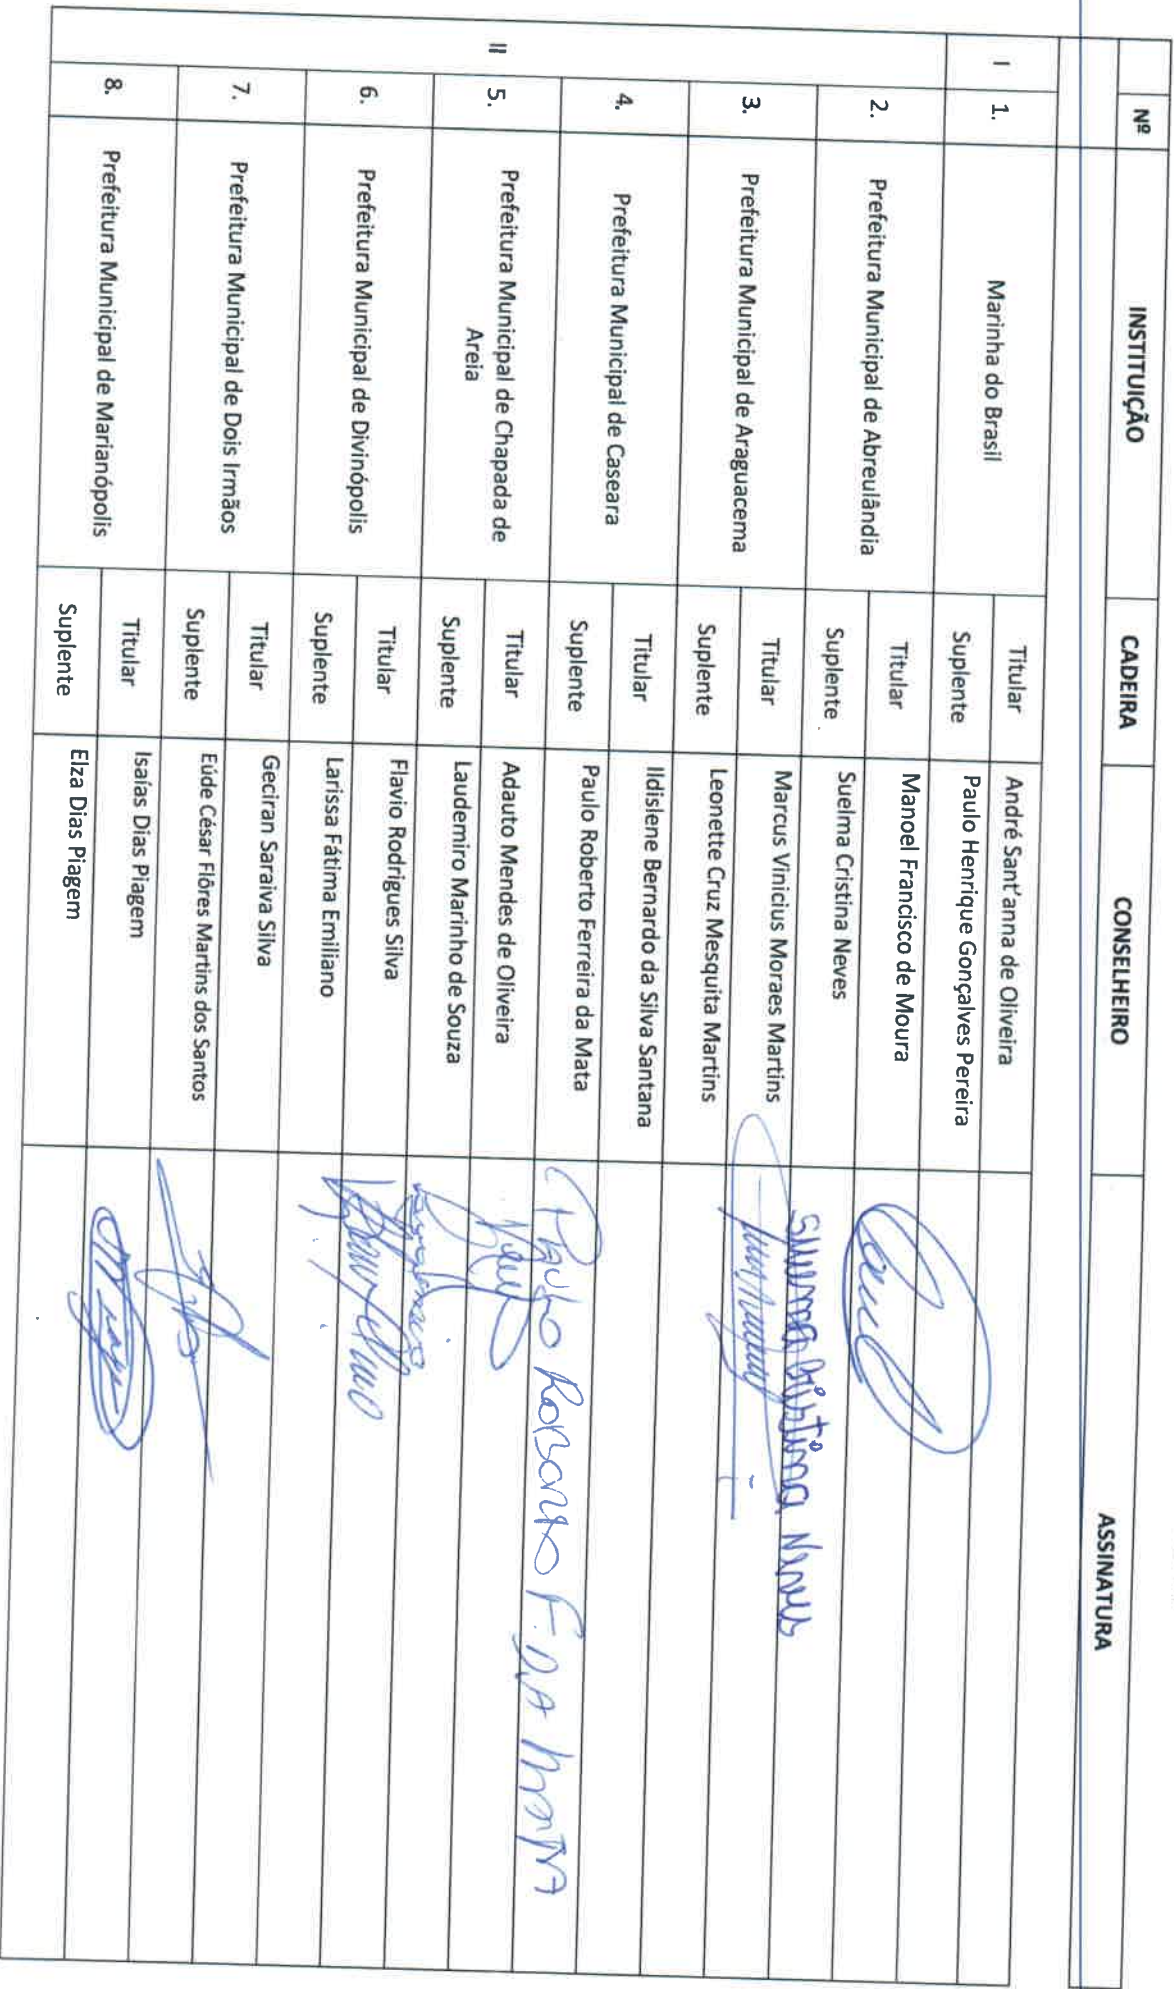 Nº INSTITUIÇÃO CADEIRA CONSELHEIRO ASSINATURA
I 1. Marinha do Brasil Titular André Sant'anna de Oliveira
Suplente Paulo Henrique Gonçalves Pereira
II 2. Prefeitura Municipal de Abreulândia Titular Manoel Francisco de Moura
Suplente Suelma Cristina Neves Suelma Cristina Neves
3. Prefeitura Municipal de Araguacema Titular Marcus Vinicius Moraes Martins
Suplente Leonette Cruz Mesquita Martins
4. Prefeitura Municipal de Caseara Titular Ildislene Bernardo da Silva Santana
Suplente Paulo Roberto Ferreira da Mata Paulo Roberto F. DA MATA
5. Prefeitura Municipal de Chapada de Titular Adauto Mendes de Oliveira
Areia Suplente Laudemiro Marinho de Souza
6. Prefeitura Municipal de Divinópolis Titular Flavio Rodrigues Silva
Suplente Larissa Fátima Emiliano
7. Prefeitura Municipal de Dois Irmãos Titular Geciran Saraiva Silva
Suplente Eúde César Flôres Martins dos Santos
8. Prefeitura Municipal de Marianópolis Titular Isaías Dias Piagem
Suplente Elza Dias Piagem